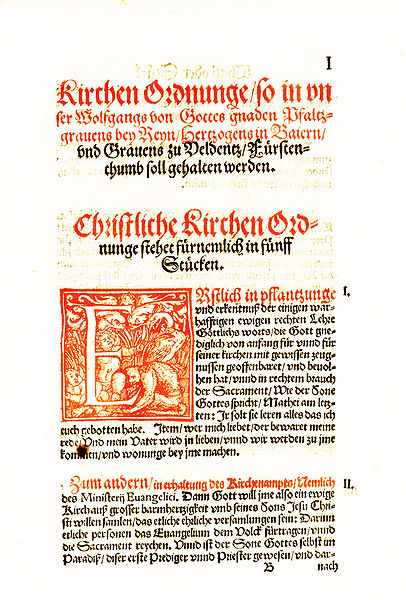 I
Kirchen Ordnunge/so in vn
ser Wolfgangs von Gottes gnaden Pfaltz-
grauens bey Reyn/Hertzogens in Baiern/
vnd Grauens zu Veldentz/Fürsten-
thumb soll gehalten werden.
Christliche Kirchen Ord-
nunge stehet fürnemlich in fünff
Stücken.
I.
ERstlich in pflantzunge
vnd erkentnuß der einigen war-
hafftigen ewigen rechten Lehre
Göttlichs worts/die Gott gne-
diglich von anfang für vnnd für
seiner kirchen mit gewissen zeug-
nussen geoffenbaret/vnd beuol-
hen hat/vnnd in rechtem brauch
der Sacrament/Wie der Sone
Gottes spricht/Matthei am letz-
ten: Ir solt sie leren alles das ich
euch gebotten habe. Item/wer mich liebet/der bewaret meine
rede/Vnd mein Vater wird jn lieben/vnnd wir werden zu jme
kommen/vnd wonunge bey jme machen.
II.
Zum andern/in erhaltung des Kirchenampts/Nemlich
des Ministerij Euangelici. Dann Gott will jme also ein ewige
Kirch auß grosser barmhertzigkeit vmb seines Sons Jesu Chri-
sti willen samlen/das etliche ehrliche versamlungen sein: Darinn
etliche personen das Euangelium dem Volck fürtragen/vnnd
die Sacrament reychen. Vnnd ist der Sone Gottes selbst im
Paradiß/diser erste Prediger vnnd Priester gewesen/vnd dar-
B nach